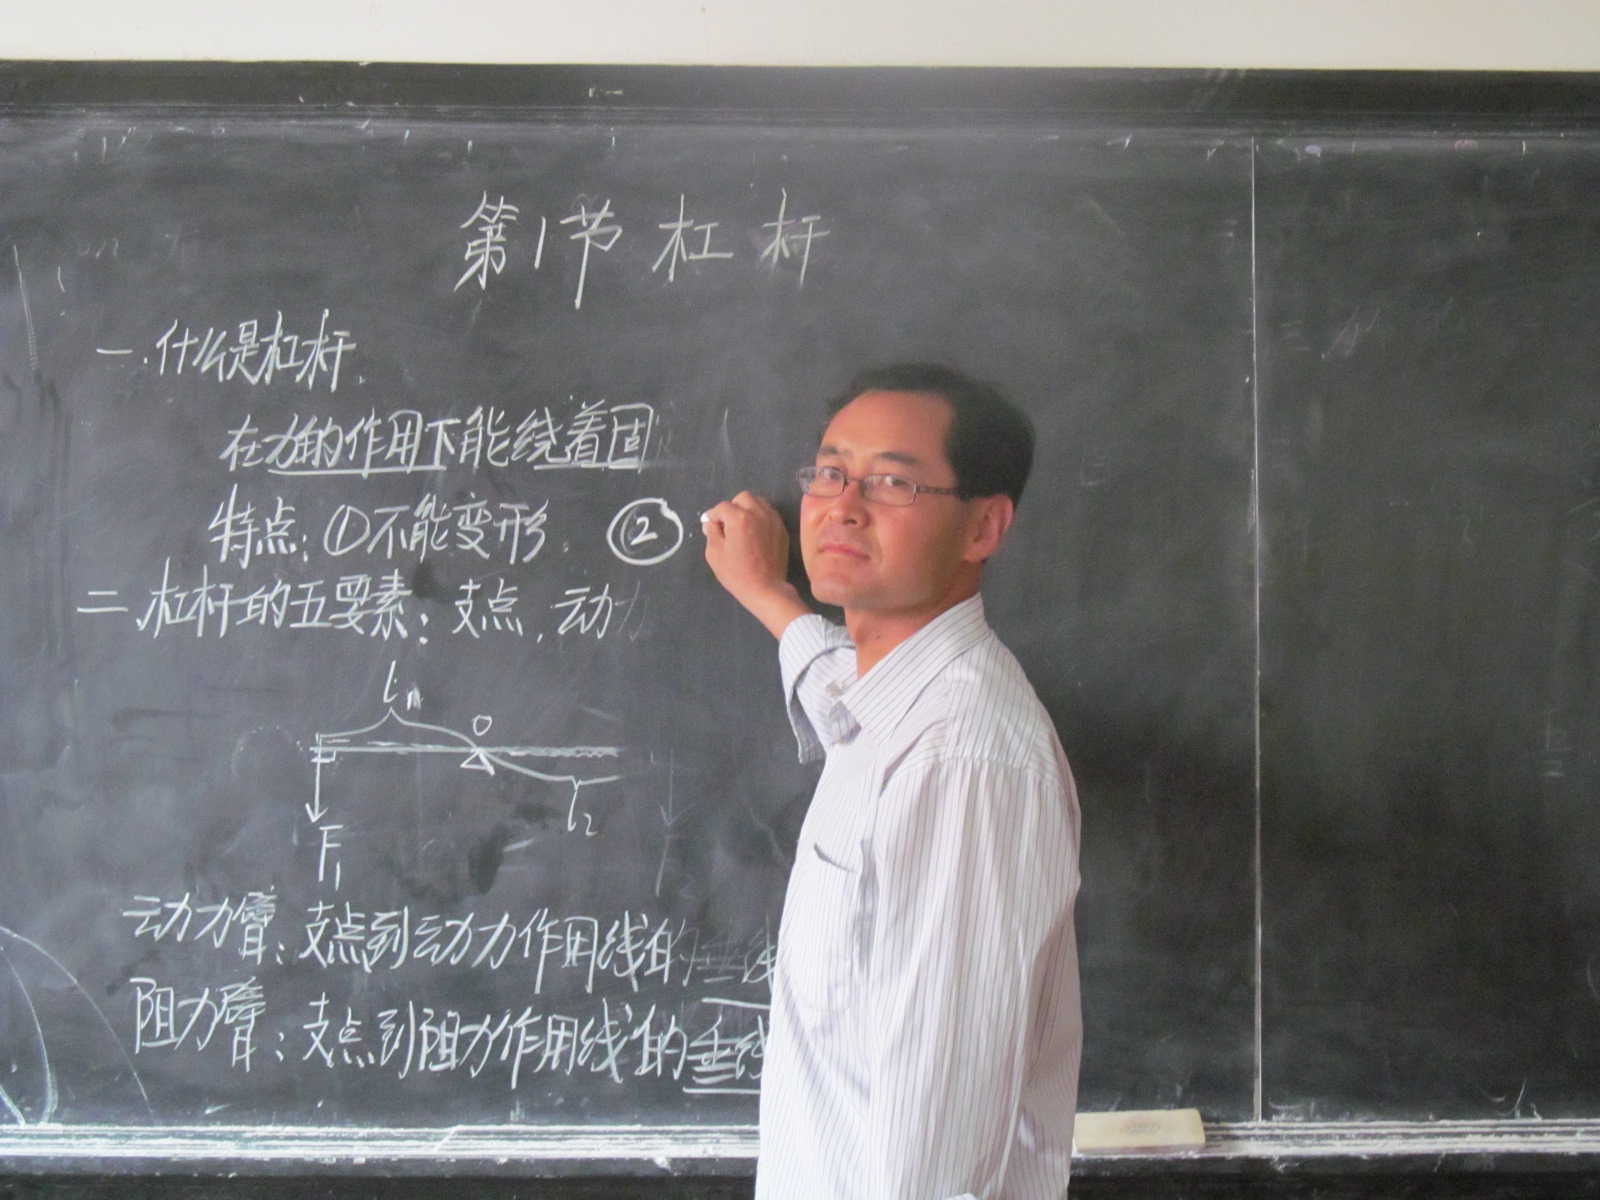 第1节 杠杆
一.什么是杠杆.
在力的作用下能绕着固
特点:①不能变形. ②
二.杠杆的五要素:支点,动力
L1
O
L2
F1
动力臂:支点到动力作用线的垂线
阻力臂:支点到阻力作用线的垂线